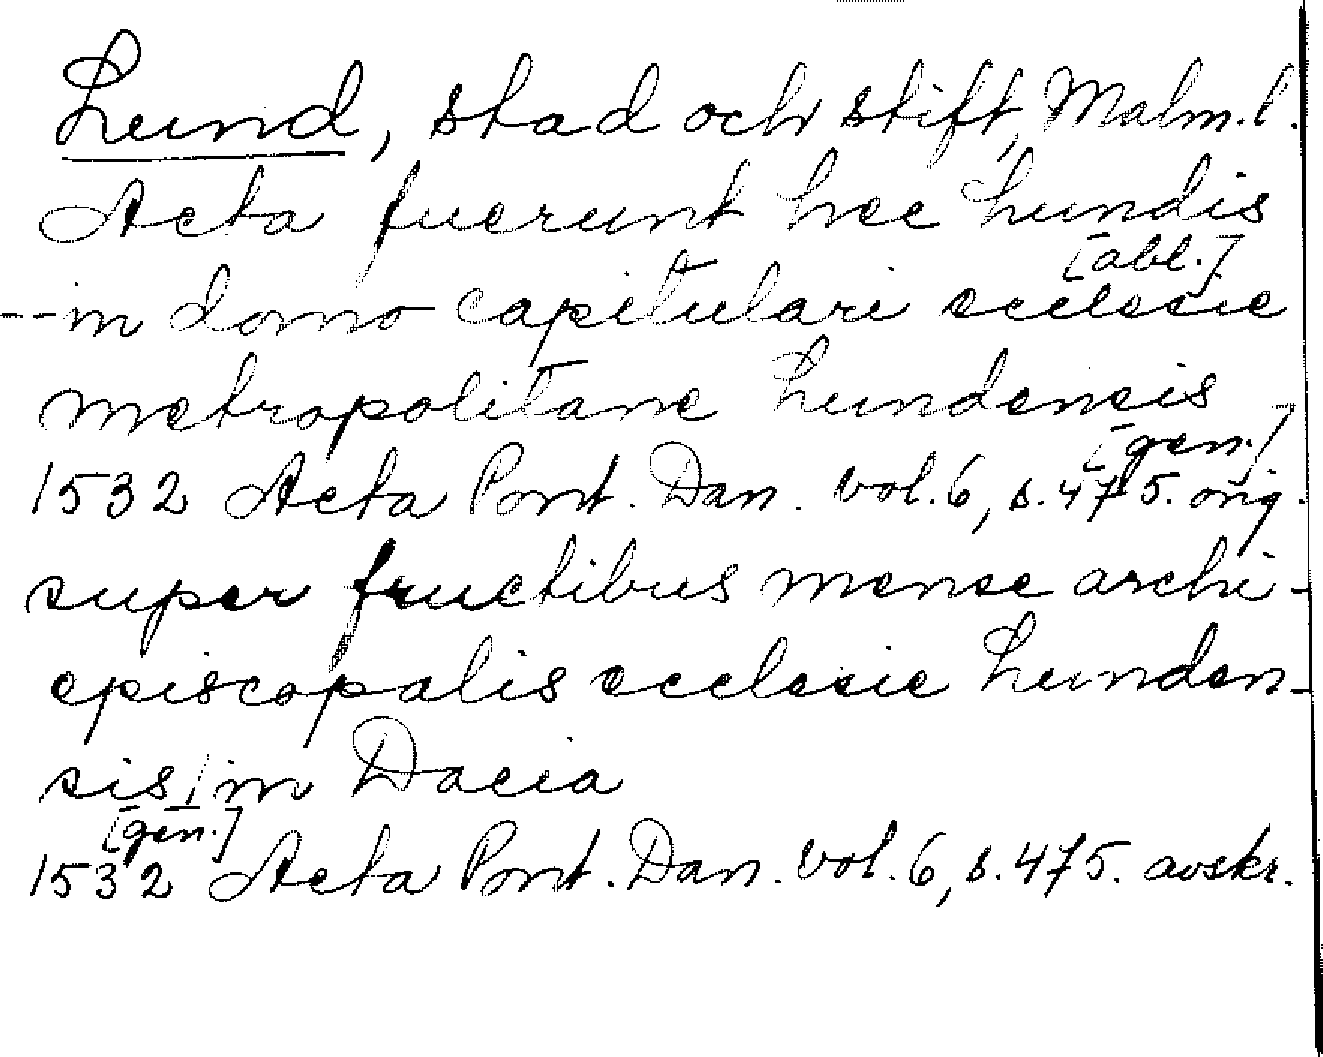 Lund, stad och stift, Malm.l.
Acta fuerunt hec Lundis
[abl.]
-- in domo capitulari ecclesie
metropolitane Lundensis
[gen.]
1532 Acta Pont. Dan. vol. 6, s. 475. orig.
super fructibus mense archi-
episcopalis ecclesie Lunden-
sis / in Dacia
[gen.]
1532 Acta Pont. Dan. vol. 6, s. 475. avskr.